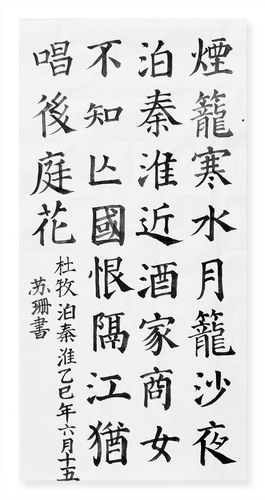 煙籠寒水月籠沙夜
泊秦淮近酒家商女
不知亾國恨隔江猶
唱後庭花
杜牧泊秦淮乙巳年六月十五
苏珊書